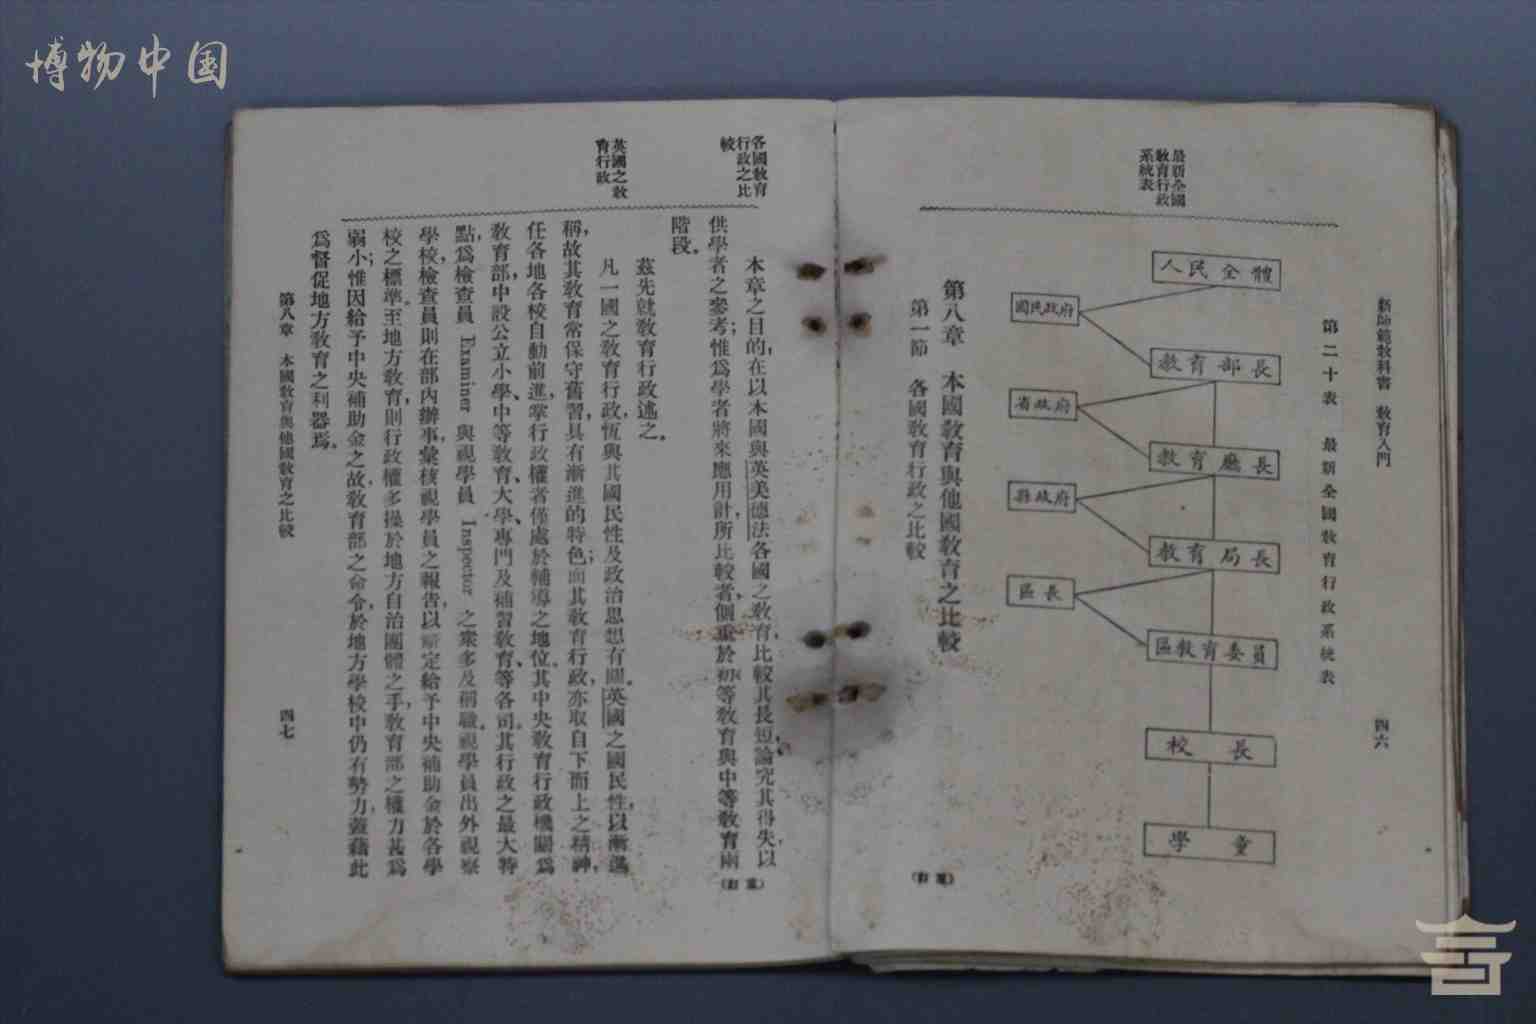 博物中国
新師範教科書 教育入門
四六
第二十表 最新全國教育行政系統表
最新全國
教育行政
系統表
人民全體
國民政府
教育部長
省政府
教育廳長
縣政府
教育局長
區長
區教育委員
校長
學童
第八章 本國教育與他國教育之比較
第一節 各國教育行政之比較
(重訂)
各國教育
行政之比
較
本章之目的,在以本國與英美德法各國之教育,比較其長短,論究其得失,以
供學者之參考;惟爲學者將來應用計,所比較者,側重於初等教育與中等教育兩
階段。
茲先就教育行政述之。
英國之教
育行政
凡一國之教育行政,恆與其國民性及政治思想有關。英國之國民性,以漸進
稱,故其教育常保守舊習,具有漸進的特色;而其教育行政,亦取自下而上之精神,
任各地各校自動前進,掌行政權者僅處於補導之地位。其中央教育行政機關爲
教育部,中設公立小學、中等教育、大學、專門及補習教育、等各司。其行政之最大特
點,爲檢查員 Examiner 與視學員 Inspector 之衆多及稱職。視學員出外視察
學校,檢查員則在部內辦事,彙核視學員之報告,以定給予中央補助金於各學
校之標準。至地方教育,則行政權多操於地方自治團體之手,教育部之權力甚爲
弱小;惟因給予中央補助金之故,教育部之命令,於地方學校中仍有勢力,蓋藉此
爲督促地方教育之利器焉。
第八章 本國教育與他國教育之比較
四七
(重訂)